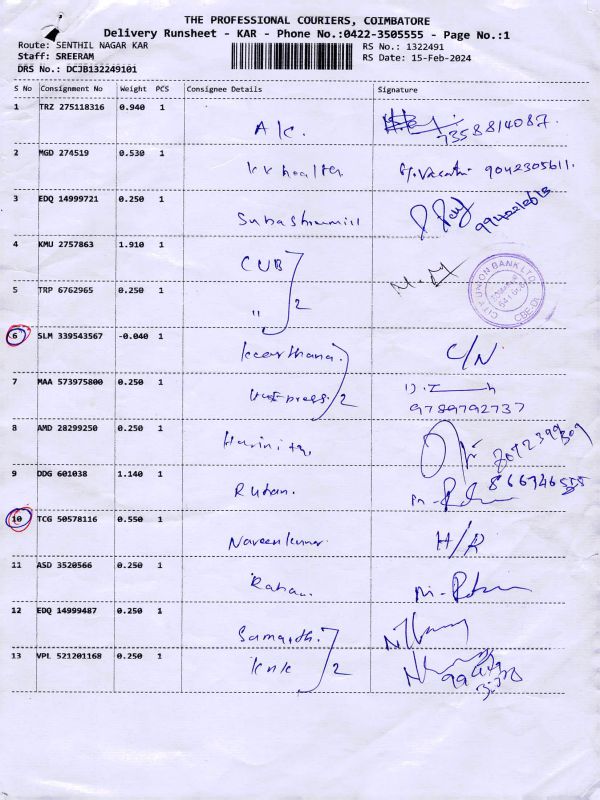 THE PROFESSIONAL COURIERS, COIMBATORE
Delivery Runsheet - KAR - Phone No.:0422-3505555 - Page No.:1
Route: SENTHIL NAGAR KAR RS No.: 1322491
Staff: SREERAM RS Date: 15-Feb-2024
DRS No.: DCJB132249101
S No Consignment No Weight PCS Consignee Details Signature
1 TRZ 275118316 0.940 1
AK. 7358814087.
2 MGD 274519 0.530 1
KK health 9042305611.
3 EDQ 14999721 0.250 1
4 KMU 2757863 1.910 1
CUB
CITY UNION BANK LTD.
5 TRP 6762965 0.250 1
" 2
6 SLM 339543567 -0.040 1
Keerthana. C/N
7 MAA 573975800 0.250 1
2 9789792737
8 AMD 28299250 0.250 1
9 DDG 601038 1.140 1
10 TCG 50578116 0.550 1
Naveenkumar H/R
11 ASD 3520566 0.250 1
12 EDQ 14999487 0.250 1
Samarth.
13 VPL 521201168 0.250 1
knk 2